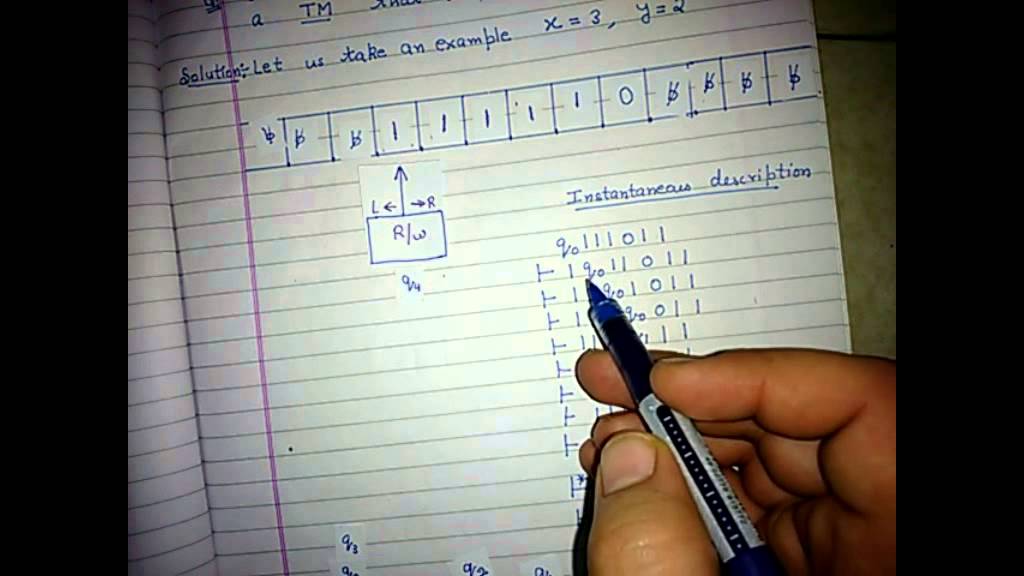 a TM
Solution:- Let us take an example x = 3, y = 2
ƀ ƀ ƀ 1 1 1 1 1 0 ƀ ƀ ƀ ƀ
L ← → R
R/w
q₄
Instantaneous description
q₀111011
⊢ 1q₀11011
⊢ 11q₀1011
⊢ 1 q₀011
⊢ 11 11
⊢
⊢
⊢
⊢
⊢*
q₃
q₂